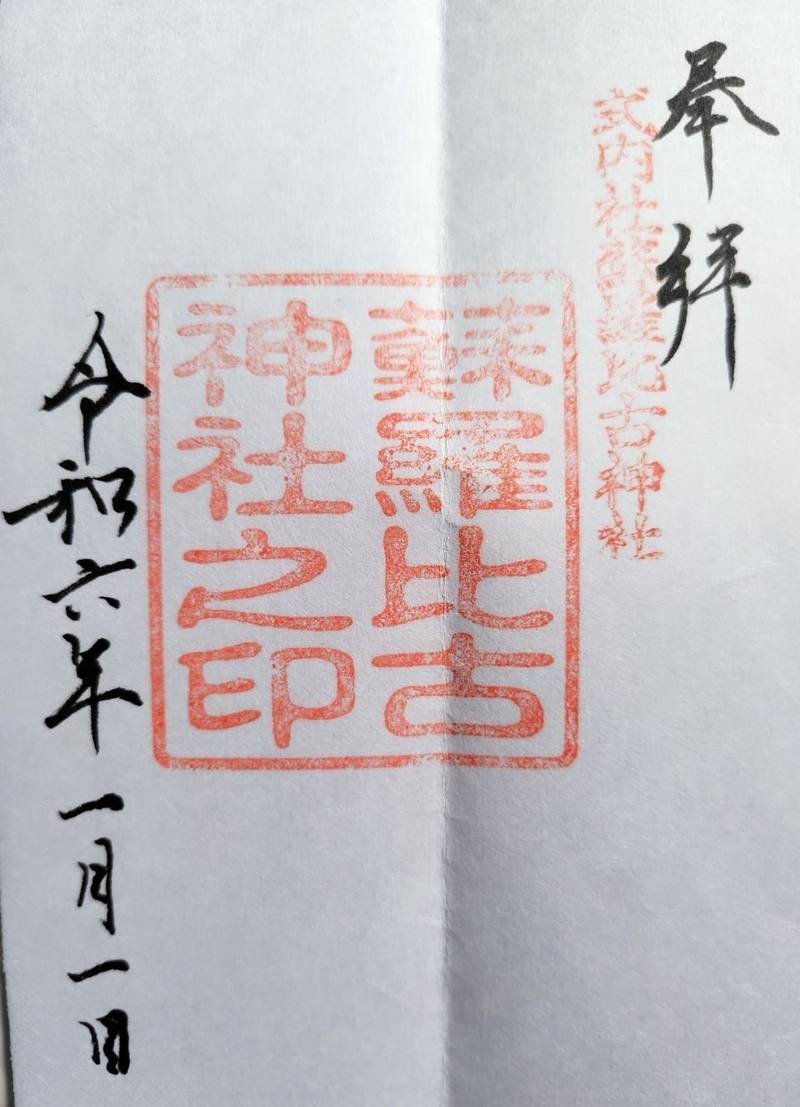 奉拝
式内社蘇羅比古神社
蘇羅比古
神社之印
令和六年一月一日